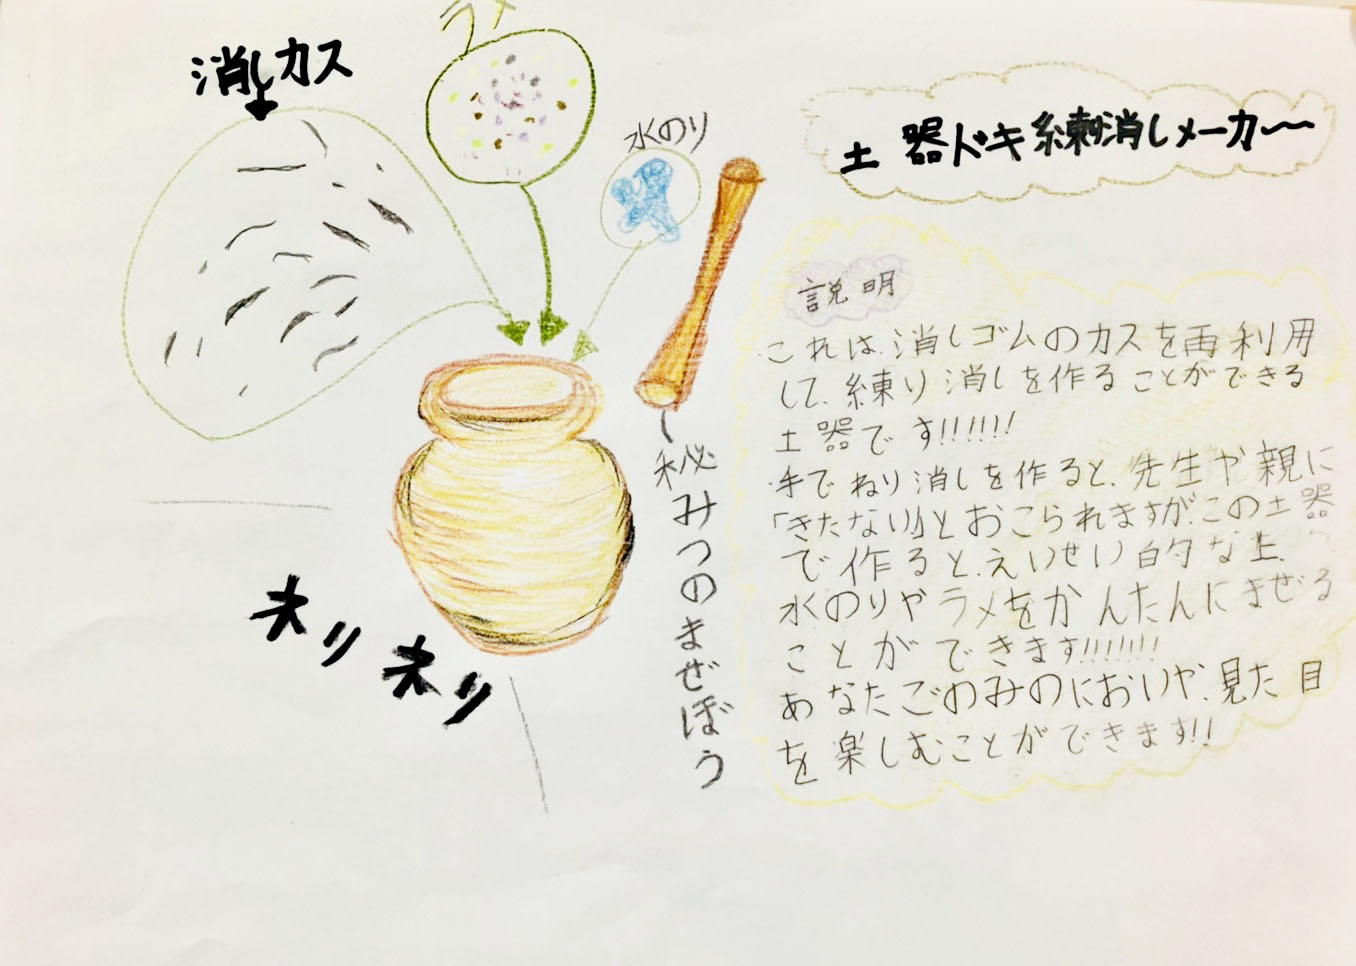 ラメ
消しカス
水のり
土器ドキ練消しメーカ〜〜
説明
これは消しゴムのカスを再利用
して、練り消しを作ることができる
土器です!!!!!!
手でねり消しを作ると、先生や親に
「きたない!」とおこられますが、この土器
で作ると、えいせい的な上、
水のりやラメをかんたんにまぜる
ことができます!!!!!!!
あなたごのみのにおいや、見た目
を楽しむことができます!!
秘みつのまぜぼう
ネリネリ